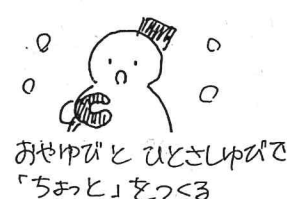 おやゆびと ひとさしゆびで
「ちょっと」をつくる